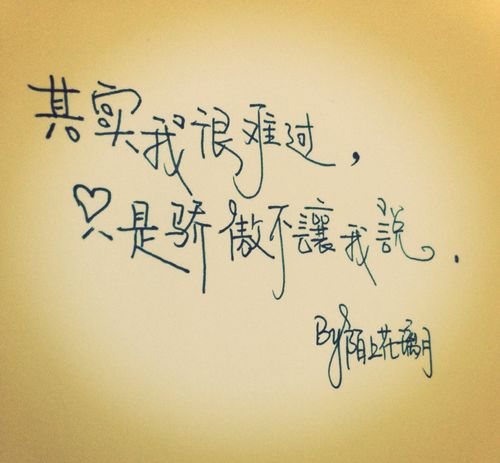 其实我很难过，
只是骄傲不讓我說。
By陌上花璃月